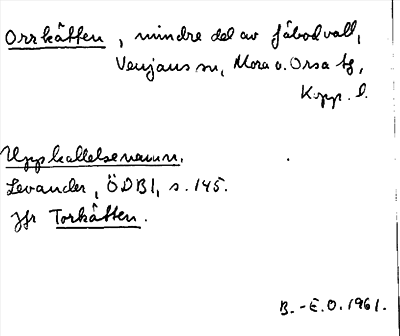 Orrkåtten, mindre del av fäbodvall,
Venjans sn, Mora o. Orsa tg,
Kopp. l.
Uppkallelsenamn.
Levander, ÖDB I, s. 145.
Jfr Torkåtten.
B.-E.O. 1961.